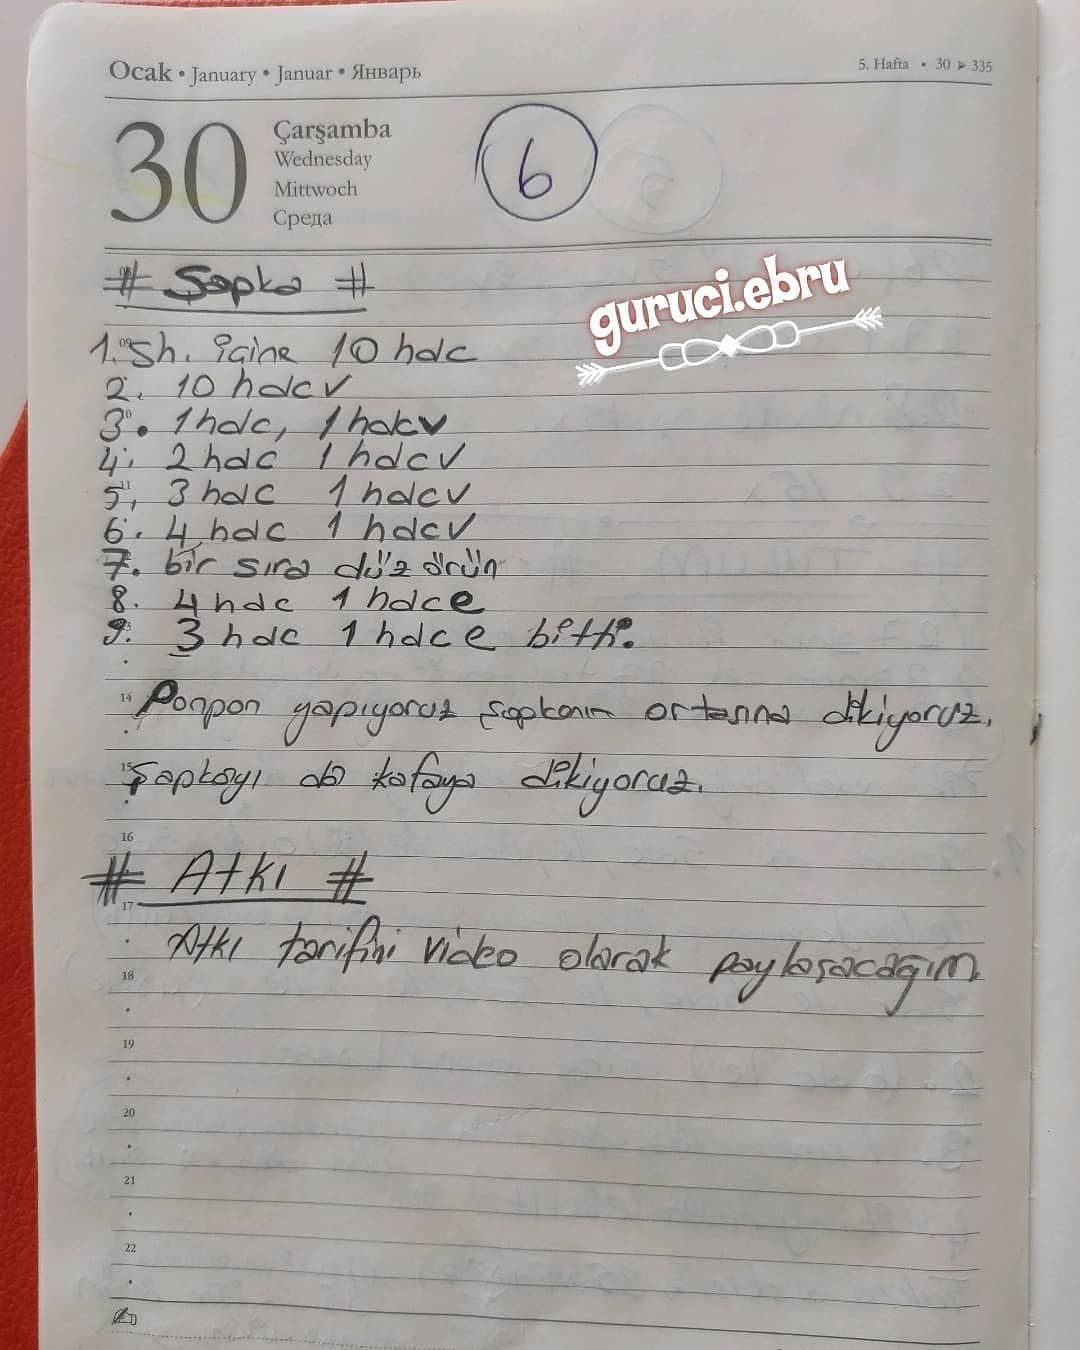 Ocak • January • Januar • Январь
5. Hafta • 30 ➤ 335
30
Çarşamba
Wednesday
Mittwoch
Среда
6
# Şapka #
guruci.ebru
1. Sh. içine 10 hdc
2. 10 hdcv
3. 1hdc, 1hdcv
4. 2 hdc 1 hdcv
5, 3 hdc 1 hdcv
6. 4 hdc 1 hdcv
7. bir sıra düz örün
8. 4 hdc 1 hdce
9. 3 hdc 1 hdce bitti.
14 Ponpon yapıyoruz şapkanın ortasına dikiyoruz.
15 Şapkayı da kafaya dikiyoruz.
16
# Atkı #
17
Atkı tarifini video olarak paylaşacağım
18
19
20
21
22